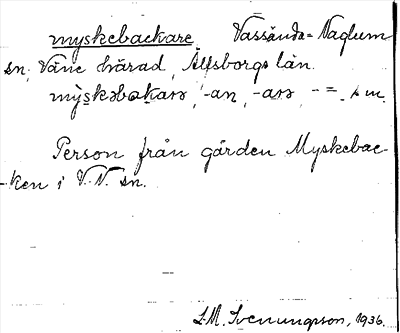 myskebackare. Vassända-Naglum
sn, Väne härad, Älfsborgs län.
mỳskəbakarə, -an, -arə, -=. s m.
Person från gården Myskebac-
ken i V.-N. sn.
S.M. Svenungsson, 1936.